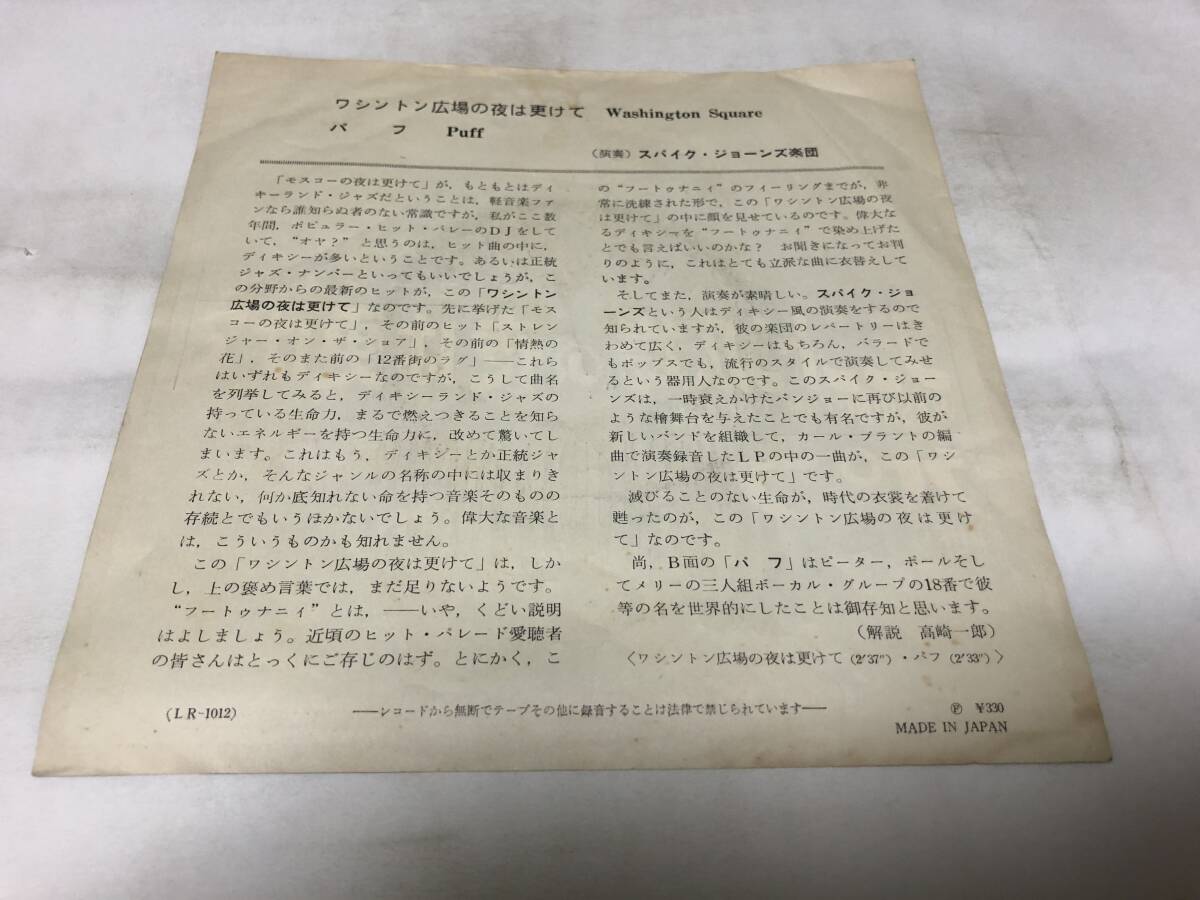 ワシントン広場の夜は更けて Washington Square
パフ Puff
（演奏）スパイク・ジョーンズ楽団
「モスコーの夜は更けて」が，もともとはディ
キーランド・ジャズだということは，軽音楽ファ
ンなら誰知らぬ者のない常識ですが，私がここ数
年間，ポピュラー・ヒット・パレーのＤＪをして
いて，“オヤ？”と思うのは，ヒット曲の中に，
ディキシーが多いということです。あるいは正統
ジャズ・ナンバーといってもいいでしょうが，こ
の分野からの最新のヒットが，この「ワシントン
広場の夜は更けて」なのです。先に挙げた「モス
コーの夜は更けて」，その前のヒット「ストレン
ジャー・オン・ザ・ショア」，その前の「情熱の
花」，そのまた前の「12番街のラグ」――これら
はいずれもディキシーなのですが，こうして曲名
を列挙してみると，ディキシーランド・ジャズの
持っている生命力，まるで燃えつきることを知ら
ないエネルギーを持つ生命力に，改めて驚いてし
まいます。これはもう，ディキシーとか正統ジャ
ズとか，そんなジャンルの名称の中には収まりき
れない，何か底知れない命を持つ音楽そのものの
存続とでもいうほかないでしょう。偉大な音楽と
は，こういうものかも知れません。
この「ワシントン広場の夜は更けて」は，しか
し，上の褒め言葉では，まだ足りないようです。
“フートゥナニィ”とは，――いや，くどい説明
はよしましょう。近頃のヒット・パレード愛聴者
の皆さんはとっくにご存じのはず。とにかく，こ
の“フートゥナニィ”のフィーリングまでが，非
常に洗練された形で，この「ワシントン広場の夜
は更けて」の中に顔を見せているのです。偉大な
るディキシーを“フートゥナニィ”で染め上げた
とでも言えばいいのかな？ お聞きになってお判
りのように，これはとても立派な曲に衣替えして
います。
そしてまた，演奏が素晴しい。スパイク・ジョ
ーンズという人はディキシー風の演奏をするので
知られていますが，彼の楽団のレパートリーはき
わめて広く，ディキシーはもちろん，バラードで
もポップスでも，流行のスタイルで演奏してみせ
るという器用人なのです。このスパイク・ジョー
ンズは，一時衰えかけたバンジョーに再び以前の
ような檜舞台を与えたことでも有名ですが，彼が
新しいバンドを組織して，カール・ブラントの編
曲で演奏録音したＬＰの中の一曲が，この「ワシ
ントン広場の夜は更けて」です。
滅びることのない生命が，時代の衣裳を着けて
甦ったのが，この「ワシントン広場の夜は更け
て」なのです。
尚，Ｂ面の「パフ」はピーター，ポールそし
てメリーの三人組ボーカル・グループの18番で彼
等の名を世界的にしたことは御存知と思います。
（解説 高崎一郎）
〈ワシントン広場の夜は更けて（2′37″）・パフ（2′33″）〉
（LR-1012）
――レコードから無断でテープその他に録音することは法律で禁じられています――
Ⓟ ￥330
MADE IN JAPAN